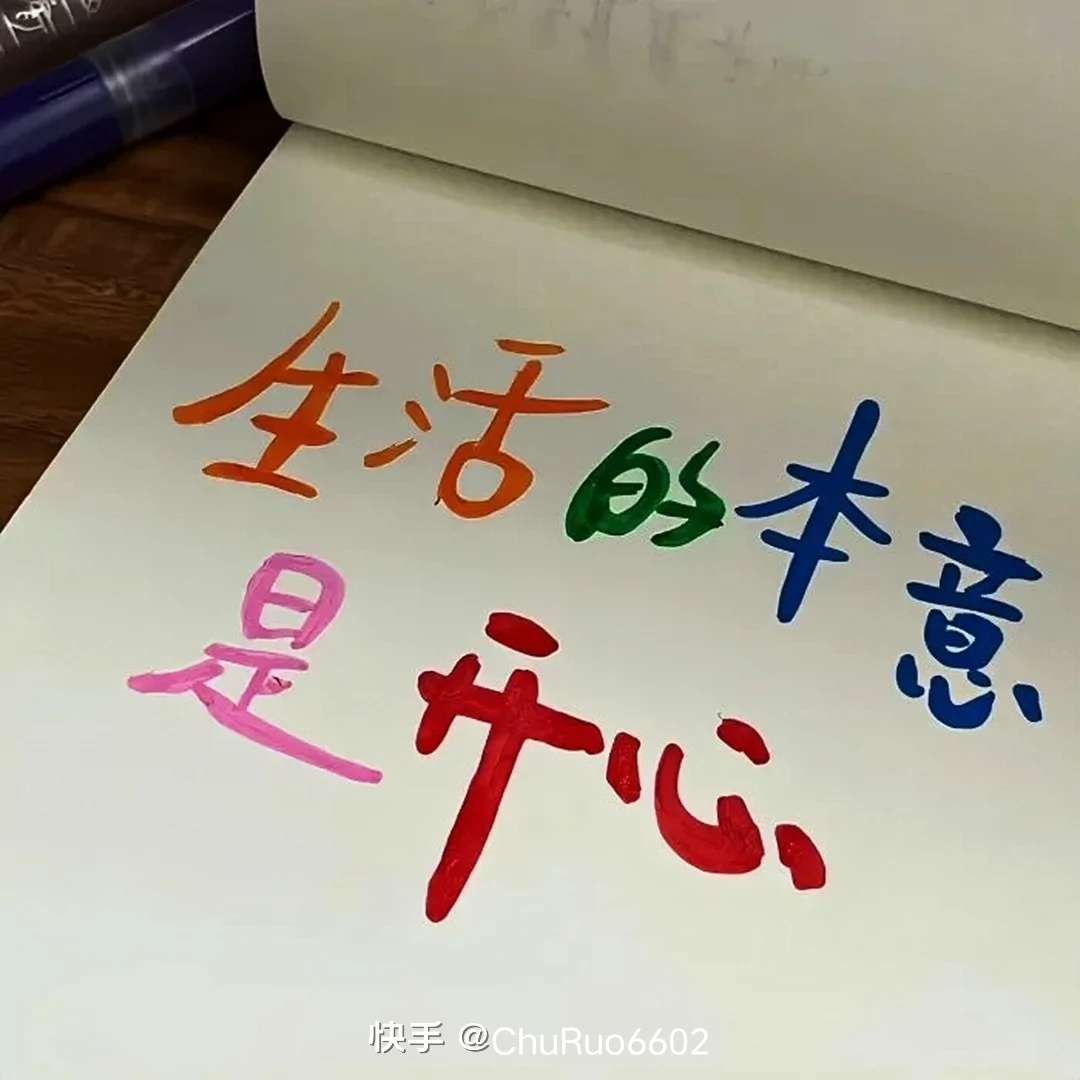 生活的本意
是开心
快手 @ChuRuo6602